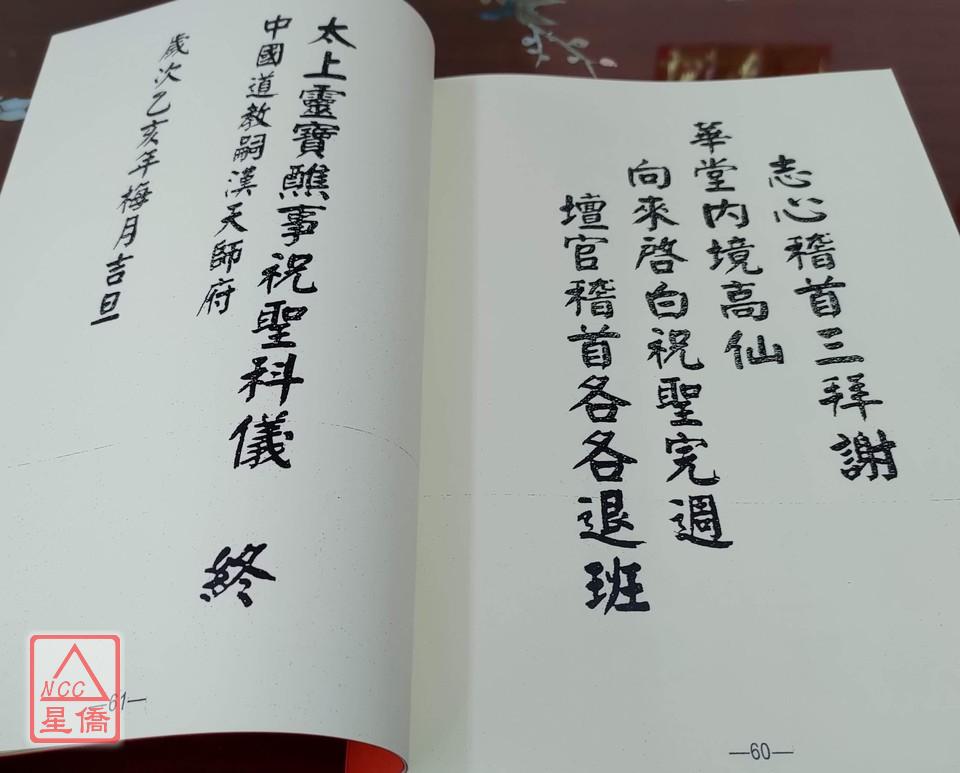 志心稽首三拜謝
華堂內境高仙
向來啓白祝聖完週
壇官稽首各各退班
—60—
太上靈寶醮事祝聖科儀 終
中國道教嗣漢天師府
歲次乙亥年梅月吉旦
—61—
NCC
星僑